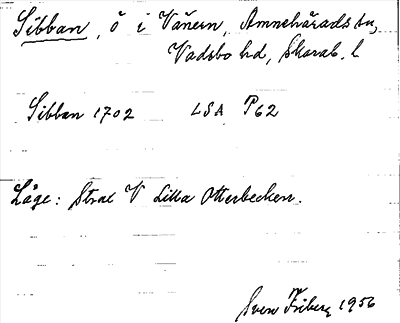 Sibban, ö i Vänern, Amnehärads sn,
Vadsbo hd, Skarab. l
Sibban 1702 LSA P62
Läge: Strax V Lilla Otterbecken.
Sven Friberg 1956